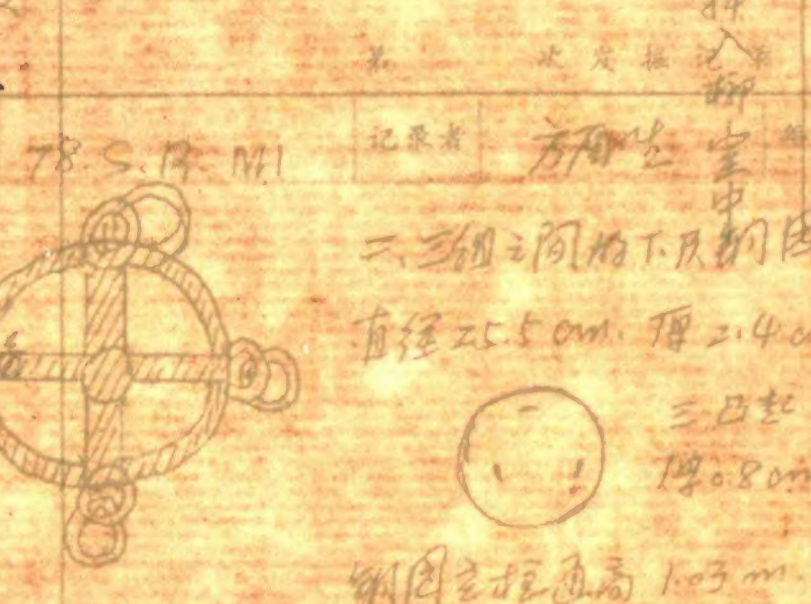 第 次发掘记录
78.S.R.M1 记录者 方酉生 年
二、三组之间的下层铜
直径25.5cm. 厚2.4c
三凸起
厚0.8cm
铜圆立柱通高1.03m.
椁室中